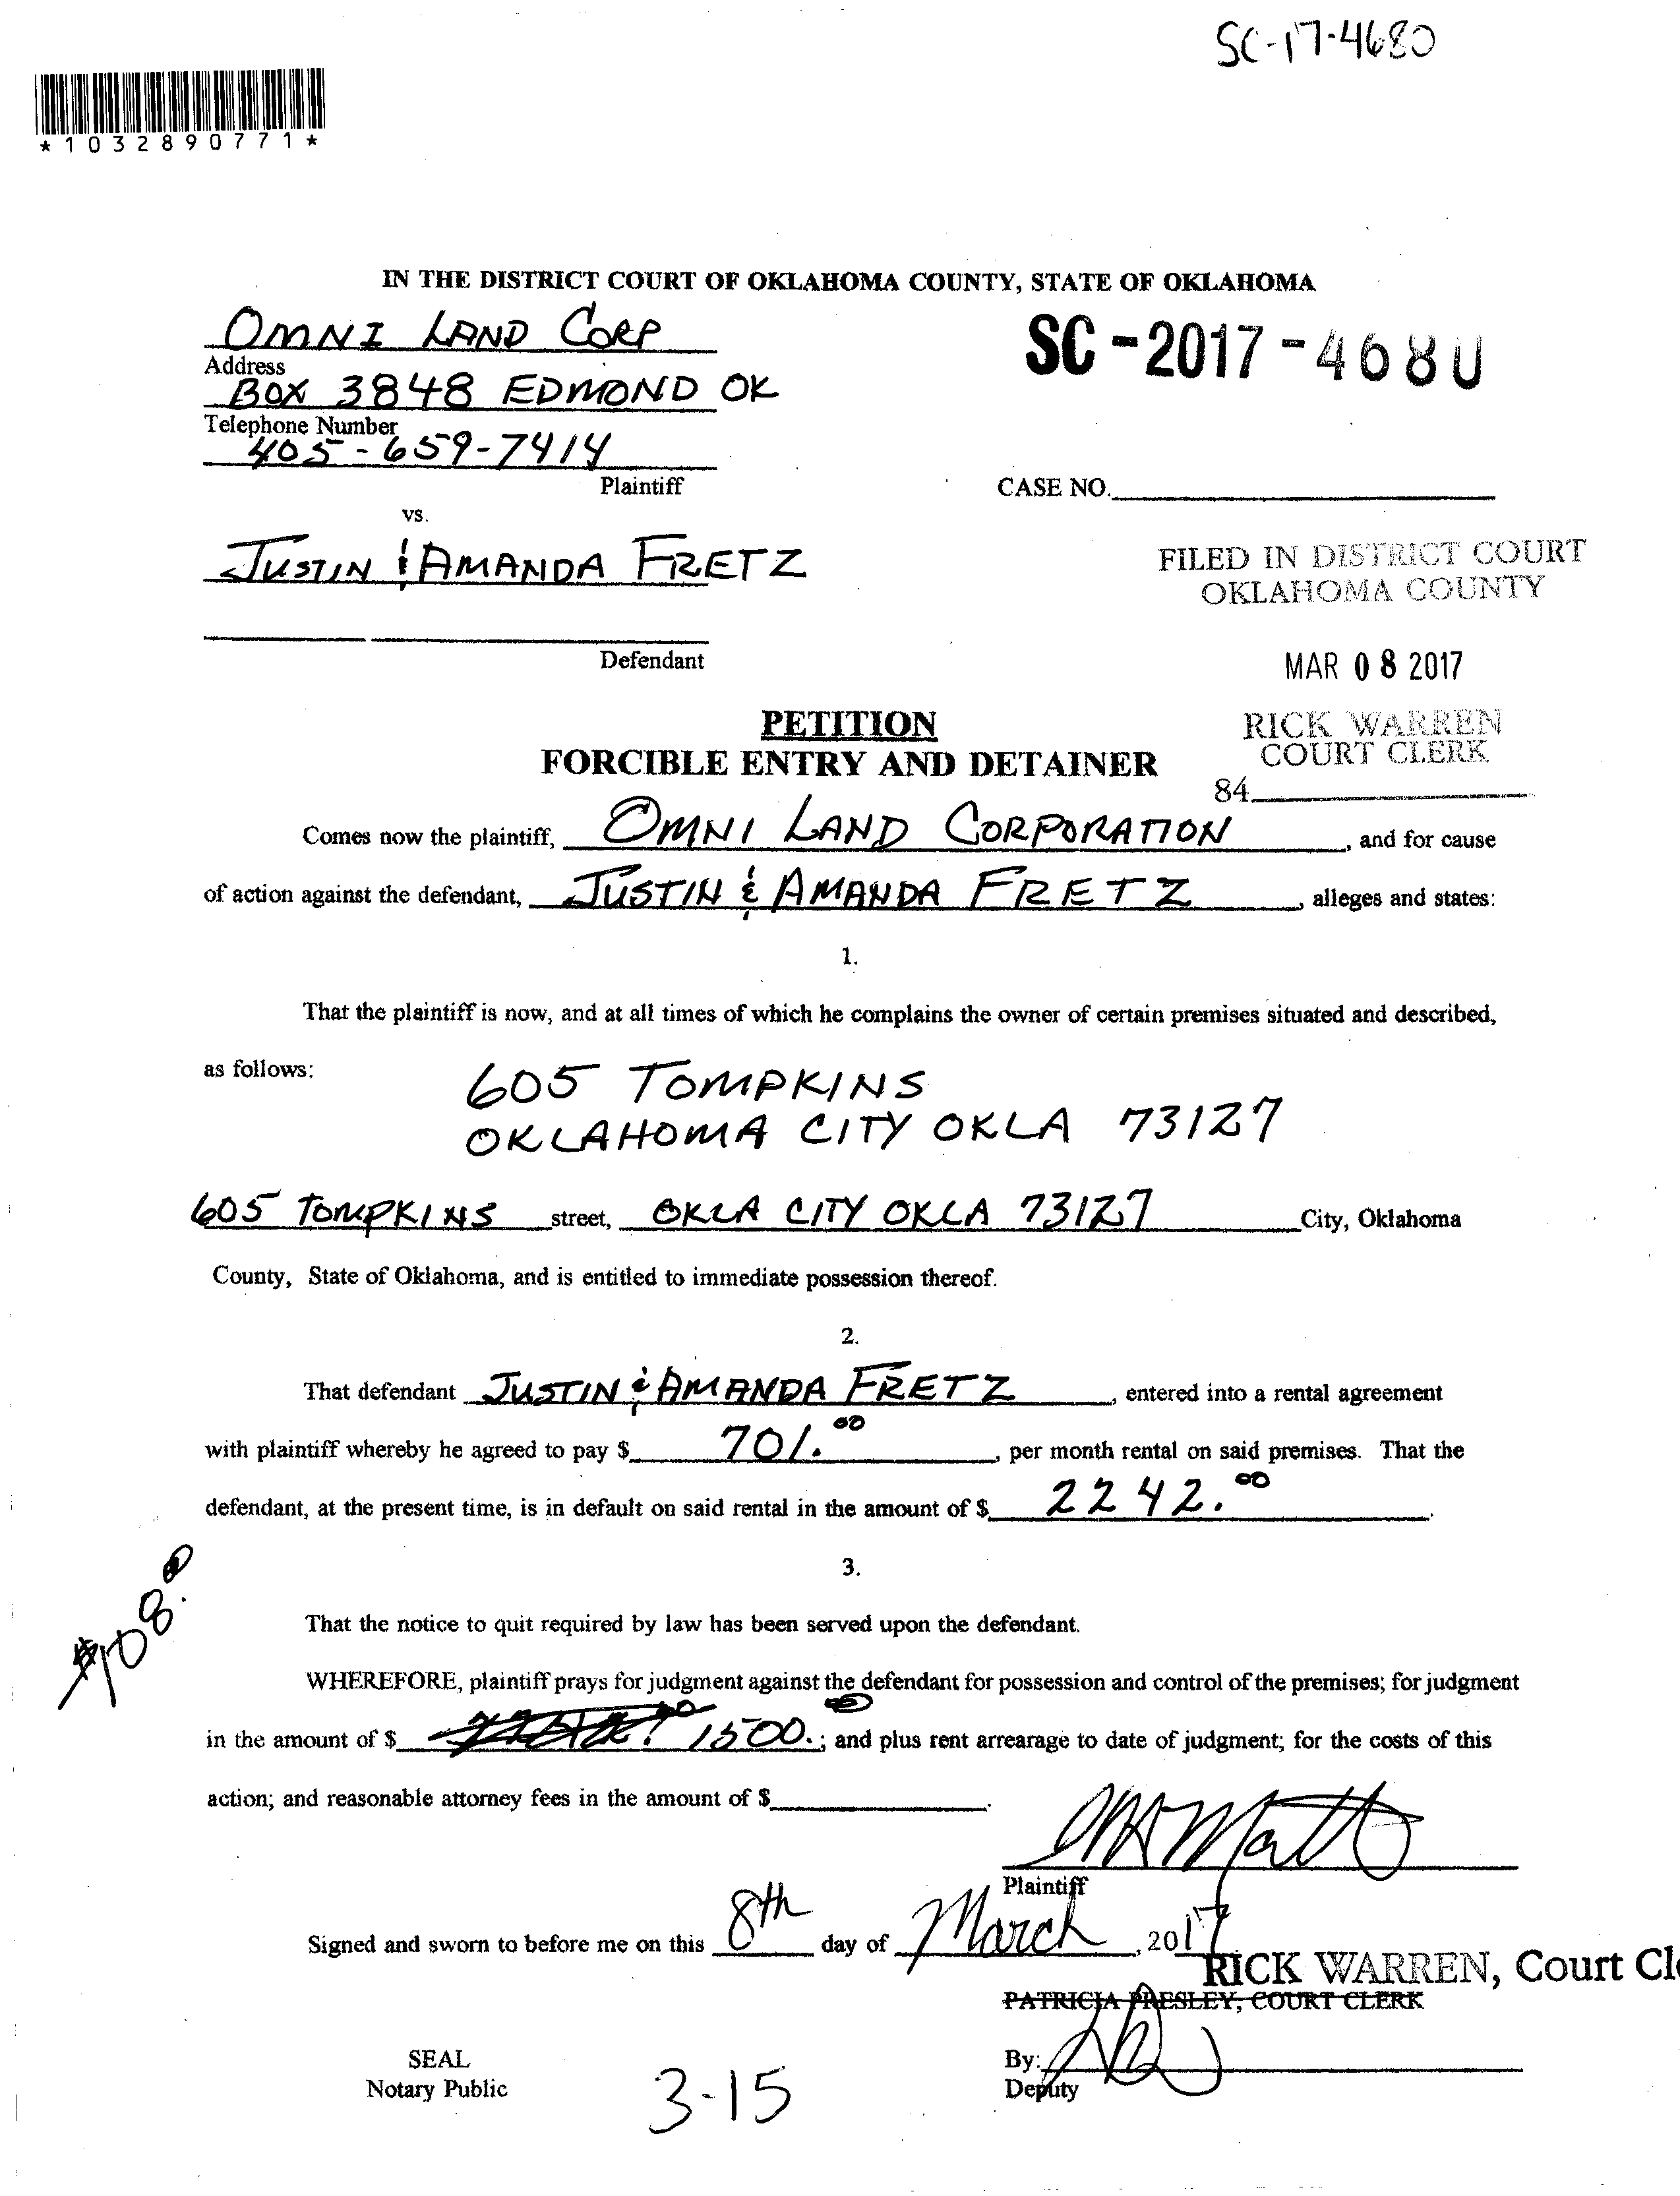 SC-17-4680
*1032890771*
IN THE DISTRICT COURT OF OKLAHOMA COUNTY, STATE OF OKLAHOMA
OMNI LAND CORP
SC-2017-4680
Address
BOX 3848 EDMOND OK
Telephone Number
405-659-7414
Plaintiff
CASE NO.
vs.
JUSTIN & AMANDA FRETZ
FILED IN DISTRICT COURT
OKLAHOMA COUNTY
Defendant
MAR 08 2017
PETITION
RICK WARREN
COURT CLERK
FORCIBLE ENTRY AND DETAINER
84
Comes now the plaintiff, OMNI LAND CORPORATION, and for cause
of action against the defendant, JUSTIN & AMANDA FRETZ, alleges and states:
1.
That the plaintiff is now, and at all times of which he complains the owner of certain premises situated and described,
as follows: 605 TOMPKINS
OKLAHOMA CITY OKLA 73127
605 TOMPKINS street, OKLA CITY OKLA 73127 City, Oklahoma
County, State of Oklahoma, and is entitled to immediate possession thereof.
2.
That defendant JUSTIN & AMANDA FRETZ, entered into a rental agreement
with plaintiff whereby he agreed to pay $ 701.00, per month rental on said premises. That the
defendant, at the present time, is in default on said rental in the amount of $ 2242.00.
3.
$108.00
That the notice to quit required by law has been served upon the defendant.
WHEREFORE, plaintiff prays for judgment against the defendant for possession and control of the premises; for judgment
in the amount of $ 1500.00; and plus rent arrearage to date of judgment; for the costs of this
action; and reasonable attorney fees in the amount of $.
Plaintiff
Signed and sworn to before me on this 8th day of March, 2017
RICK WARREN, Court Cl
PATRICIA PRESLEY, COURT CLERK
SEAL
By:
Notary Public
Deputy
3-15